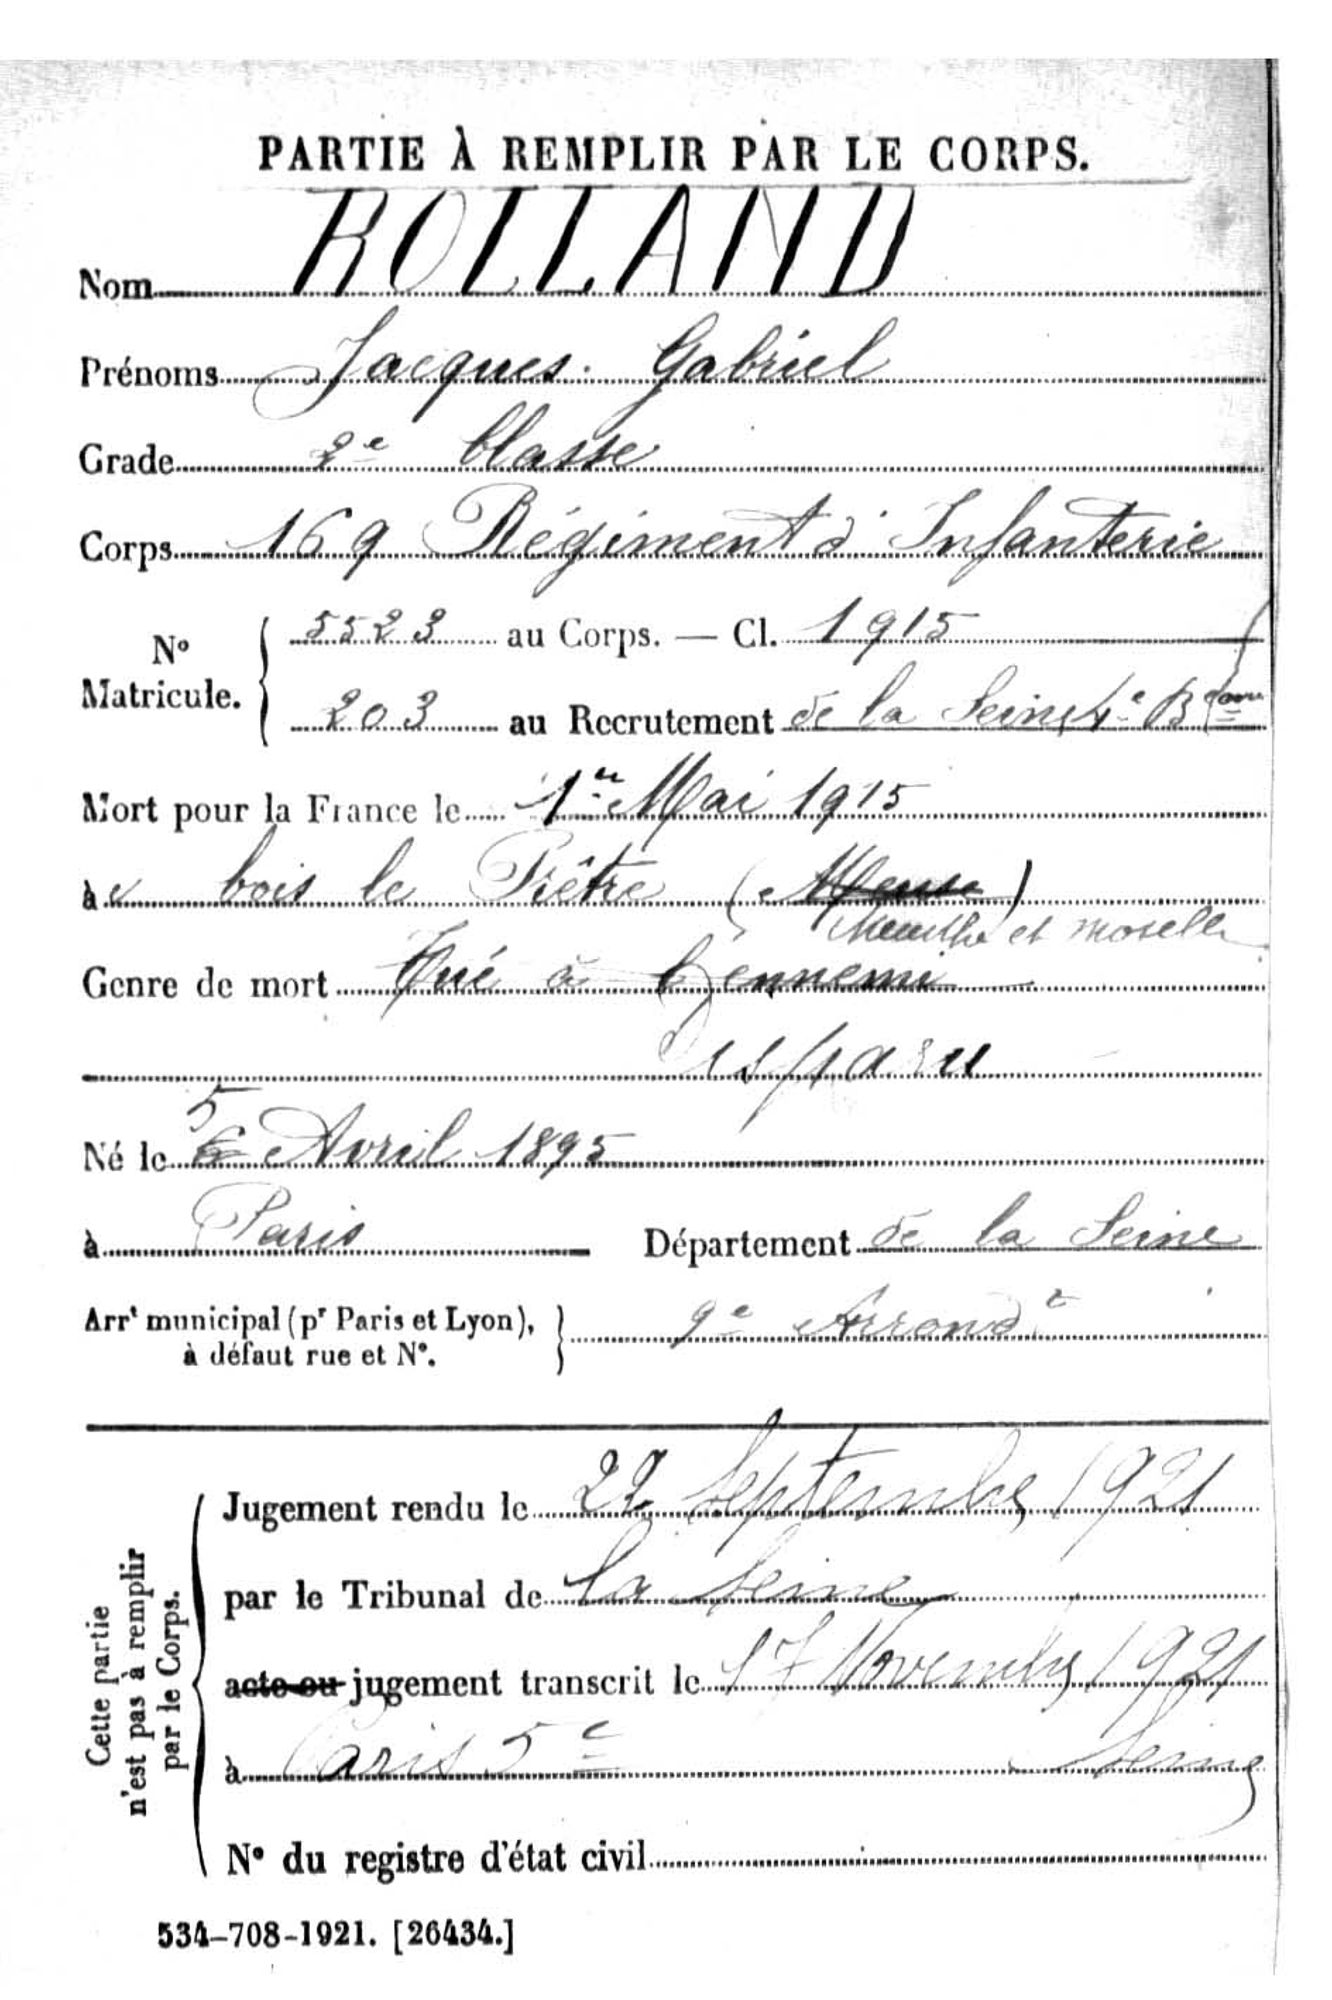 PARTIE À REMPLIR PAR LE CORPS.
Nom ROLLAND
Prénoms Jacques. Gabriel
Grade 2e Classe
Corps 169 Régiment d'Infanterie
No Matricule. { 5523 au Corps. — Cl. 1915
203 au Recrutement de la Seine 4e Bau
Mort pour la France le 1er Mai 1915
à bois le Prêtre (Meuse)
Meurthe et Moselle
Genre de mort Tué à l'ennemi
Disparu
5
Né le 6 Avril 1895
à Paris Département de la Seine
Arrt municipal (pr Paris et Lyon), à défaut rue et No. } 9e Arrondt
Cette partie n'est pas à remplir par le Corps.
Jugement rendu le 22 Septembre 1921
par le Tribunal de la Seine
acte ou jugement transcrit le 17 Novembre 1921
à Paris 5e Seine
No du registre d'état civil
534-708-1921. [26434.]